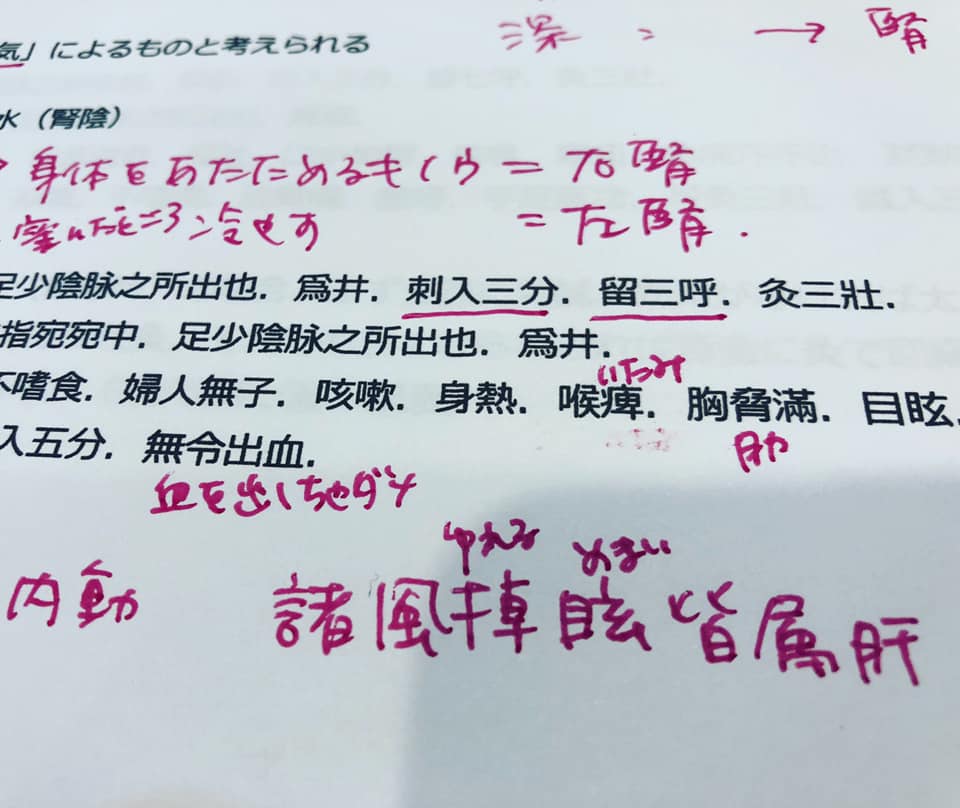 深 、 → 腎
気」によるものと考えられる
水（腎陰）
身体をあたためるもくひ = 右腎
ところ冷やす = 左腎.
足少陰脉之所出也. 爲井. 刺入三分. 留三呼. 灸三壯.
指宛宛中. 足少陰脉之所出也. 爲井.
いたみ
不嗜食. 婦人無子. 咳嗽. 身熱. 喉痺. 胸脅滿. 目眩.
肋
入五分. 無令出血.
血を出しちゃダメ
ゆれる めまい
内動 諸風掉眩皆属肝